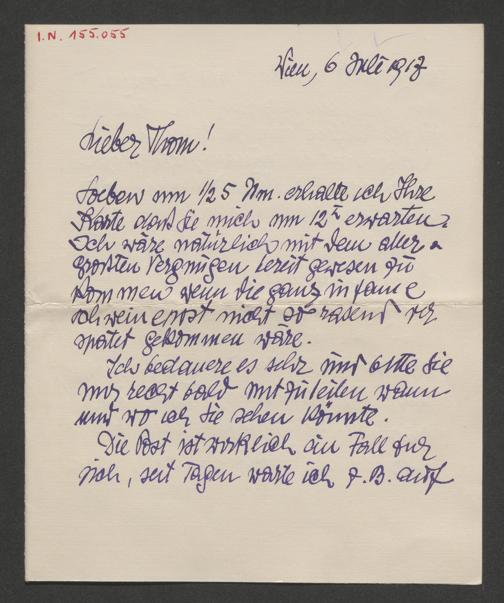 I.N. 155.055
Wien, 6 Juli 1917
Lieber Thom!
Soeben um 1/2 5 Nm. erhalte ich Ihre
Karte daß Sie mich um 12h erwarten.
Ich wäre natürlich mit dem aller-
größten Vergnügen bereit gewesen zu
kommen wenn die ganz infame
Schweinepost nicht so rasend ver
spätet gekommen wäre.
Ich bedauere es sehr und bitte Sie
mir recht bald mitzuteilen wann
und wo ich Sie sehen könnte.
Die Post ist wirklich ein Fall für
sich, seit Tagen warte ich z.B. auf